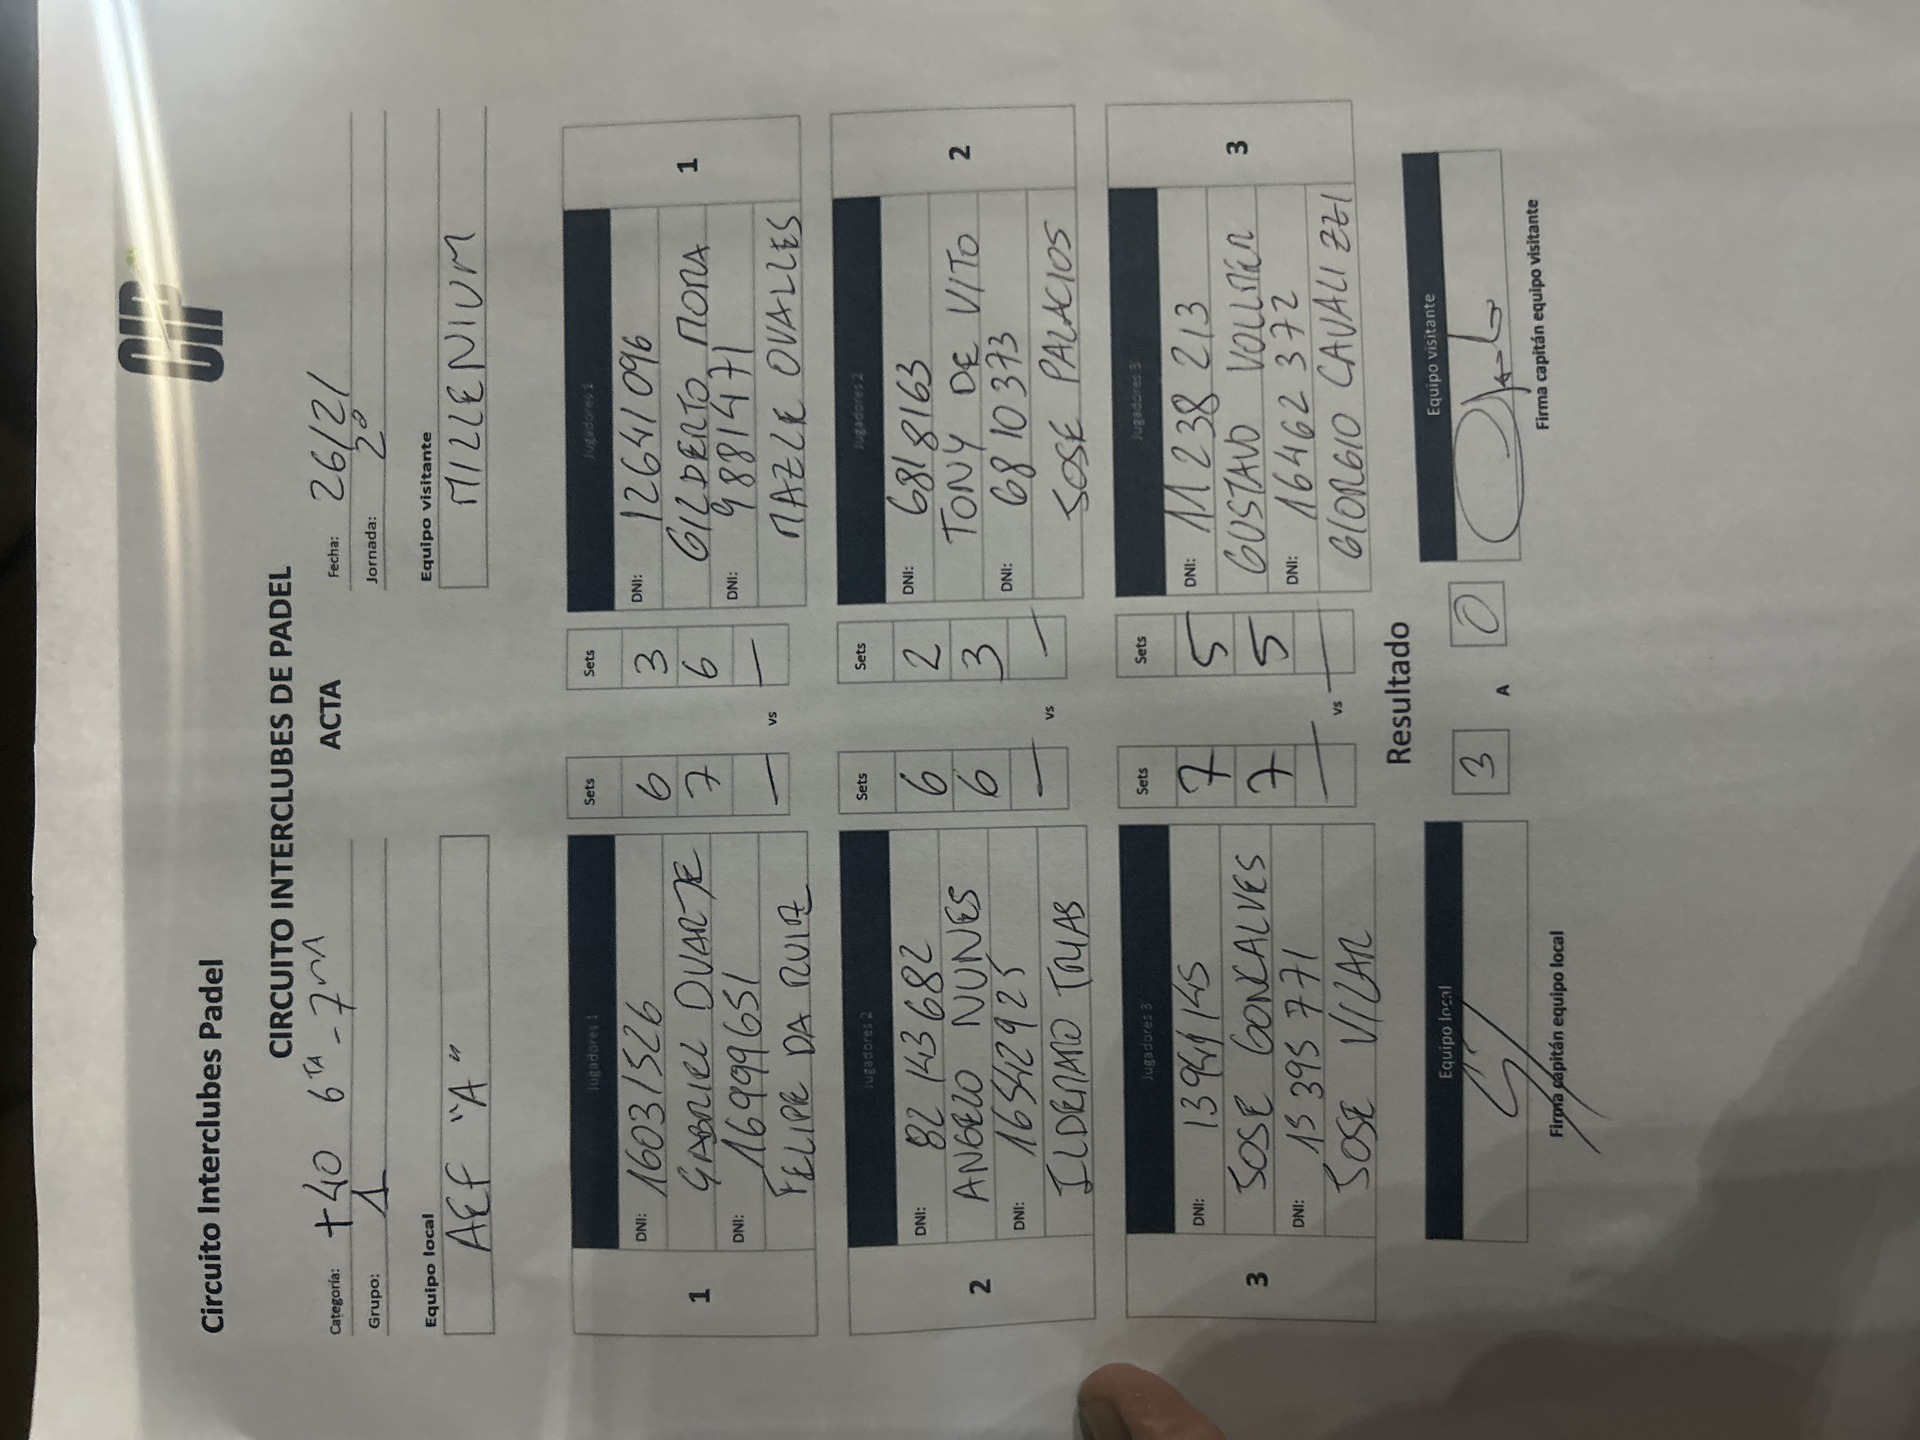 CIP
Circuito Interclubes Padel
CIRCUITO INTERCLUBES DE PADEL
ACTA
Categoría: +40 6TA - 7MA
Fecha: 26/21
Grupo: 1
Jornada: 2º
Equipo local
Equipo visitante
AEF "A"
MILLENIUM
1
Jugadores 1
DNI: 16031526
GABRIEL DUARTE
DNI: 16999651
FELIPE DA RUIZ
Sets
6
7
—
vs
Sets
3
6
—
Jugadores 1
DNI: 12641096
GILBERTO MORA
DNI: 9881471
MAZLE OVALLES
1
2
Jugadores 2
DNI: 82143682
ANGELO NUNES
DNI: 16542925
ILDEMARO
Sets
6
6
—
vs
Sets
2
3
—
Jugadores 2
DNI: 6818163
TONY DE VITO
DNI: 6810373
JOSE PALACIOS
2
3
Jugadores 3
DNI: 13949145
JOSE GONCALVES
DNI: 15395771
JOSE VILAR
Sets
7
7
—
vs
Sets
5
5
—
Jugadores 3
DNI: 11238213
GUSTAVO
DNI: 16462372
GIORGIO CAVALIZZI
3
Resultado
Equipo local
3 A 0
Equipo visitante
Firma capitán equipo local
Firma capitán equipo visitante